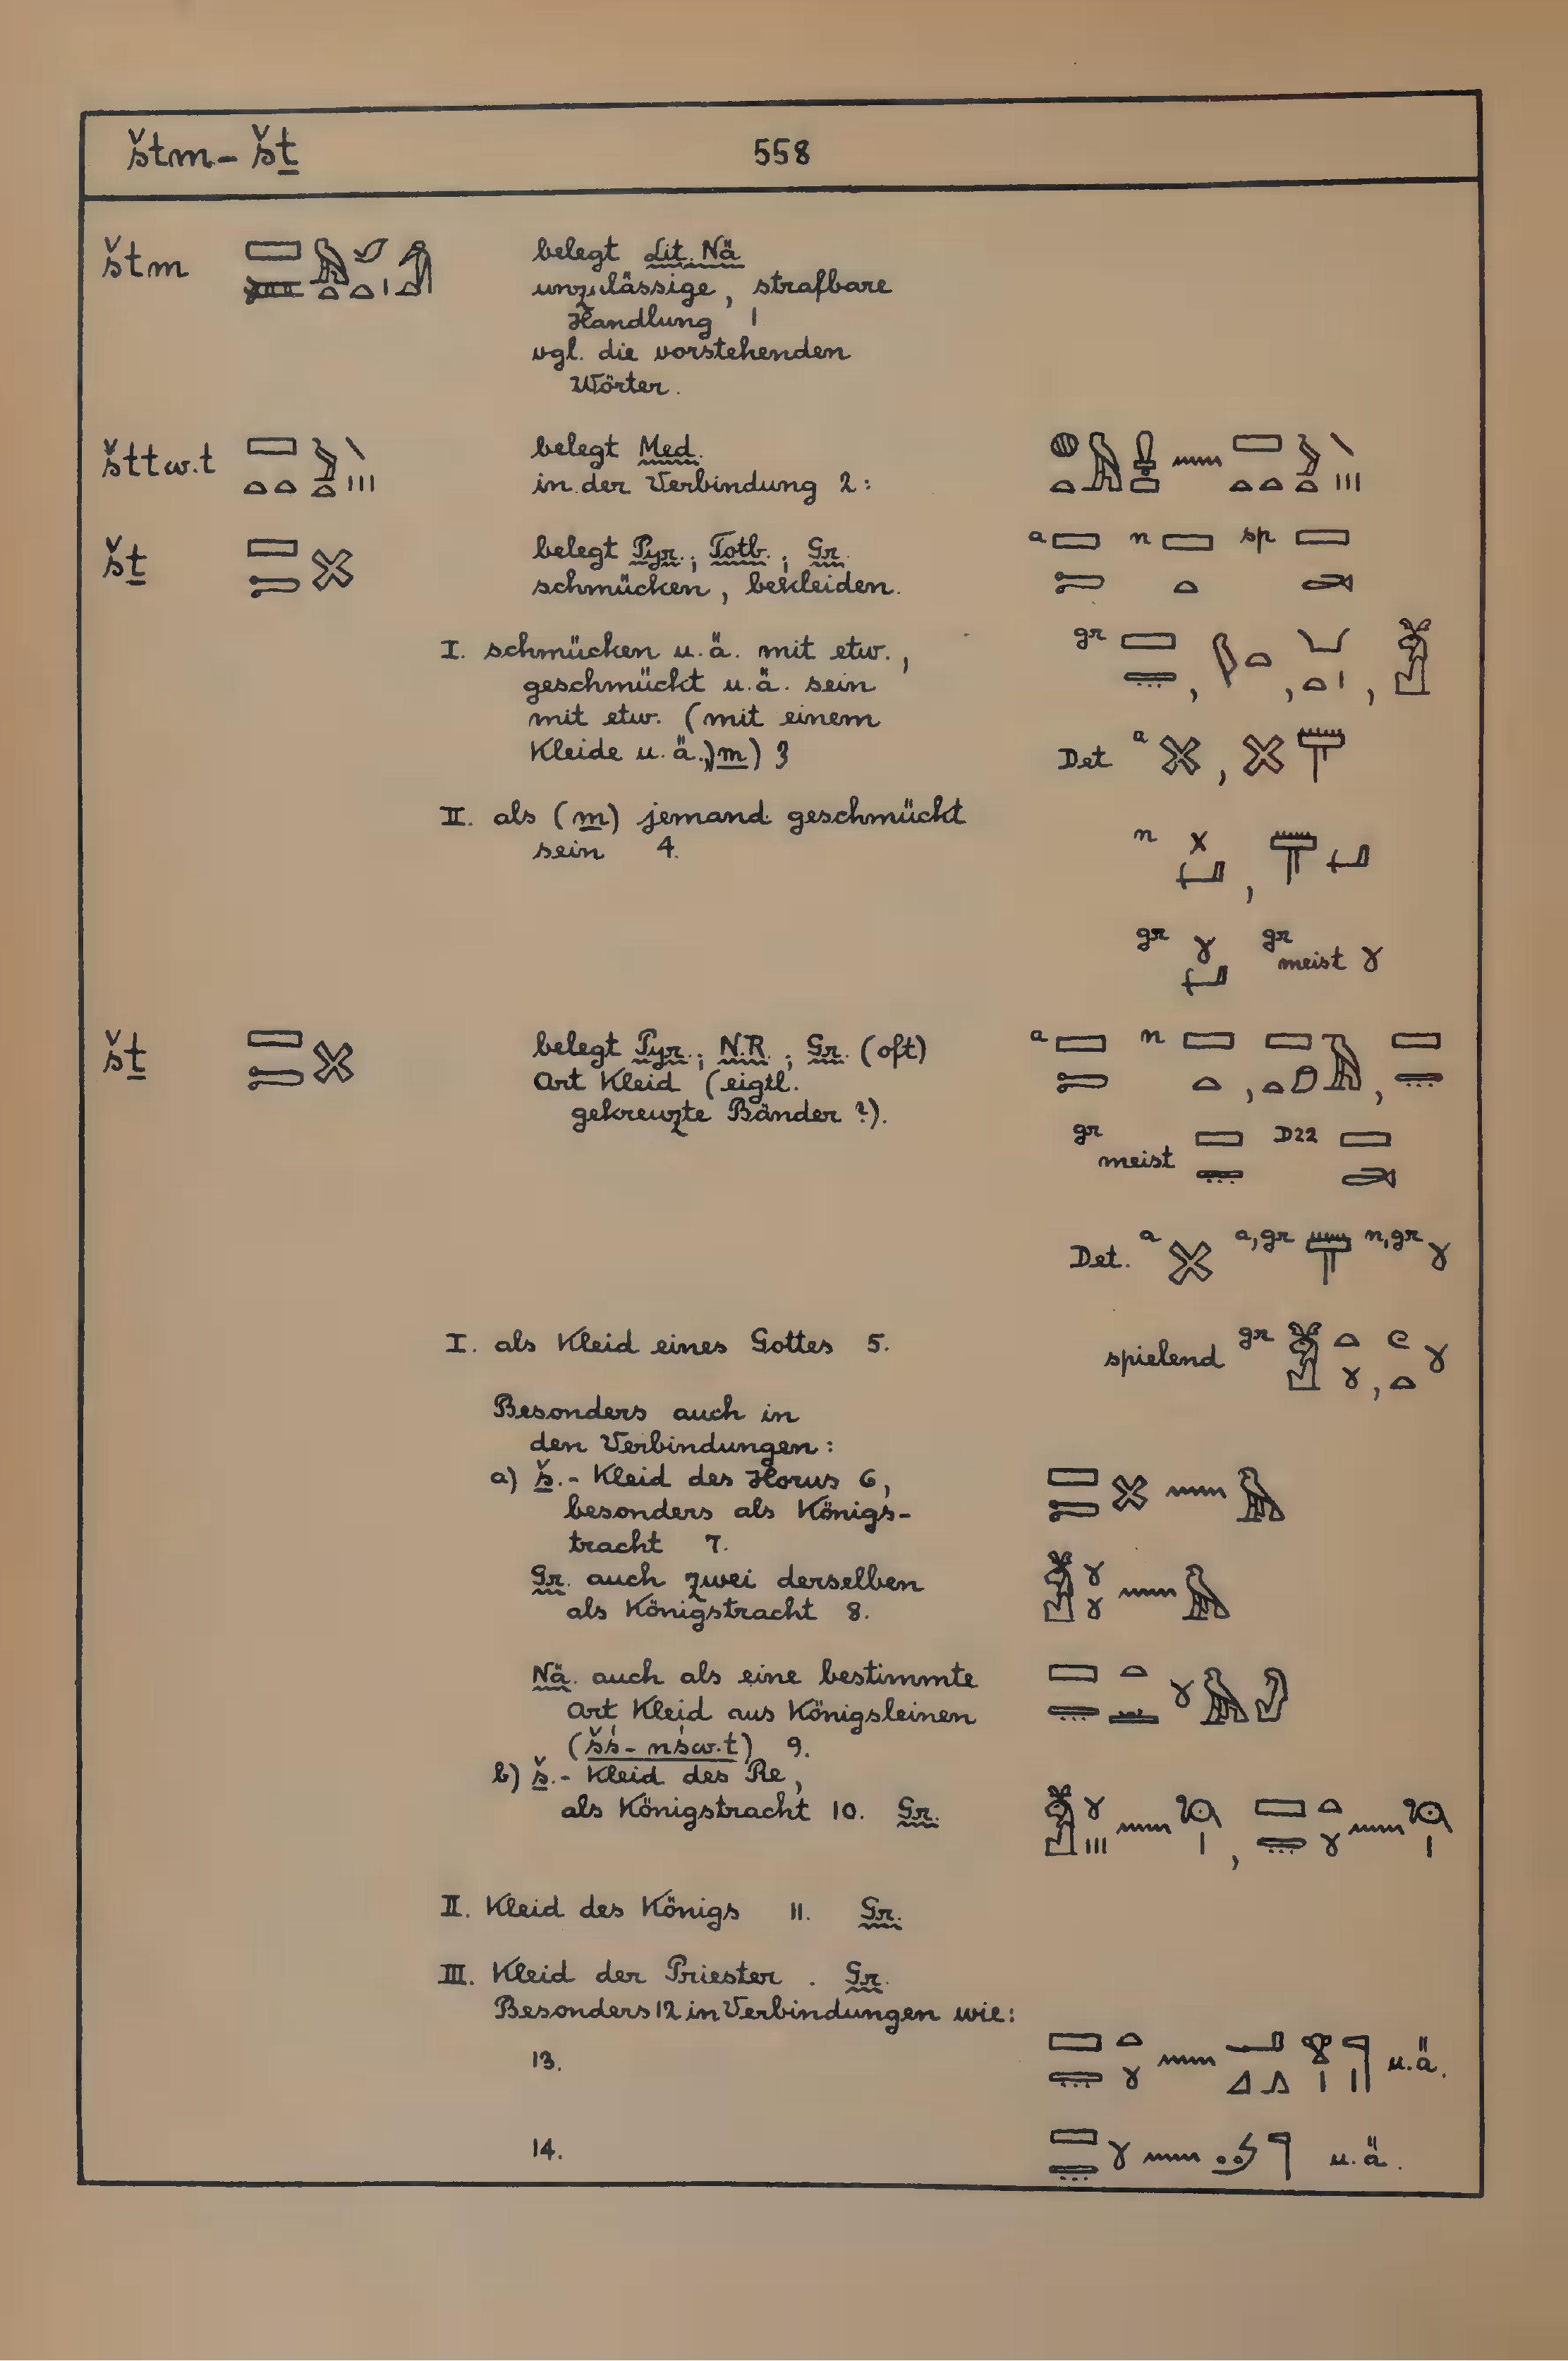 štm - šṯ 558
štm
belegt Lit. Nä
unzulässige, strafbare
Handlung 1
vgl. die vorstehenden
Wörter.
šttw.t
belegt Med.
in der Verbindung 2:
šṯ
belegt Pyr.; Totb.; Gr.
schmücken, bekleiden.
a n sp
I. schmücken u.ä. mit etw.,
geschmückt u.ä. sein
mit etw. (mit einem
Kleide u.ä.,) m) 3
gr
Det a
II. als (m) jemand geschmückt
sein 4.
n
gr gr meist
šṯ
belegt Pyr.; N.R.; Gr. (oft)
Art Kleid (eigtl.
gekreuzte Bänder?).
a n
gr meist D22
Det. a a,gr n,gr
I. als Kleid eines Gottes 5.
spielend gr
Besonders auch in
den Verbindungen:
a) š.- Kleid des Horus 6,
besonders als Königs-
tracht 7.
Gr. auch zwei derselben
als Königstracht 8.
Nä. auch als eine bestimmte
Art Kleid aus Königsleinen
(šś-nśw.t) 9.
b) š.- Kleid des Re,
als Königstracht 10. Gr.
II. Kleid des Königs 11. Gr.
III. Kleid der Priester. Gr.
Besonders 12 in Verbindungen wie:
13. u.ä.
14. u.ä.